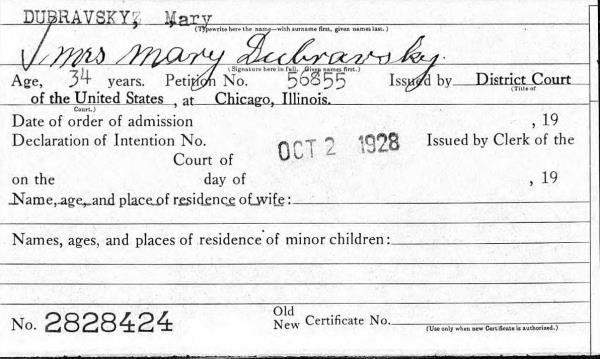 DUBRAVSKY, Mary
(Typewrite here the name—with surname first, given names last.)
Mrs Mary Dubravsky.
(Signature here in full. Given names first.)
Age, 34 years. Petition No. 56855 Issued by District Court
(Title of
of the United States, at Chicago, Illinois.
Court.)
Date of order of admission , 19
Declaration of Intention No. OCT 2 1928 Issued by Clerk of the
Court of
on the day of , 19
Name, age, and place of residence of wife:
Names, ages, and places of residence of minor children:
No. 2828424 Old
New Certificate No.
(Use only when new Certificate is authorized.)